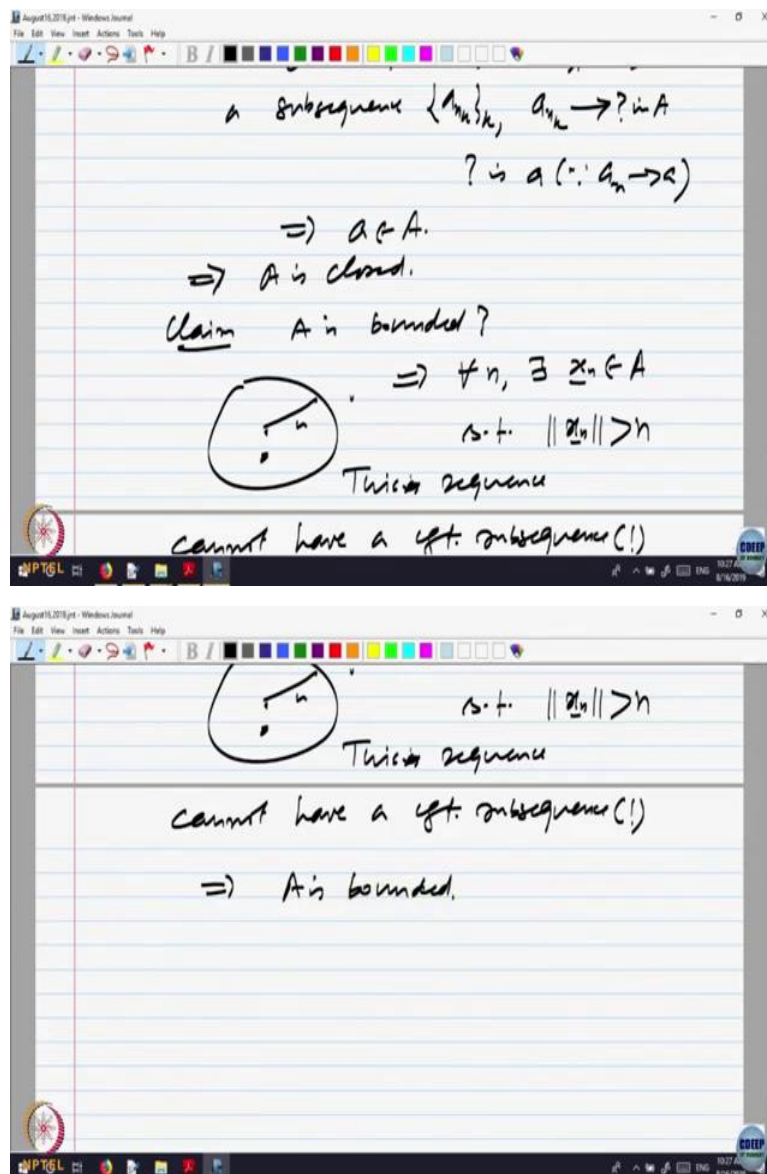 August16,2018.jnt - Windows Journal
File Edit View Insert Actions Tools Help
B I
a subsequence {a_{n_k}}_k, a_{n_k} → ? in A
? is a (∵ a_n → a)
⇒ a ∈ A.
⇒ A is closed.
Claim A is bounded?
⇒ ∀ n, ∃ x_n ∈ A
n
s.t. ||x_n|| > n
This sequence
cannot have a cgt. subsequence (!)
NPTEL
CDEEP
ENG
10:27 A
8/16/2019
August16,2018.jnt - Windows Journal
File Edit View Insert Actions Tools Help
B I
n
s.t. ||x_n|| > n
This sequence
cannot have a cgt. subsequence (!)
⇒ A is bounded.
NPTEL
CDEEP
ENG
10:27 A
8/16/2019